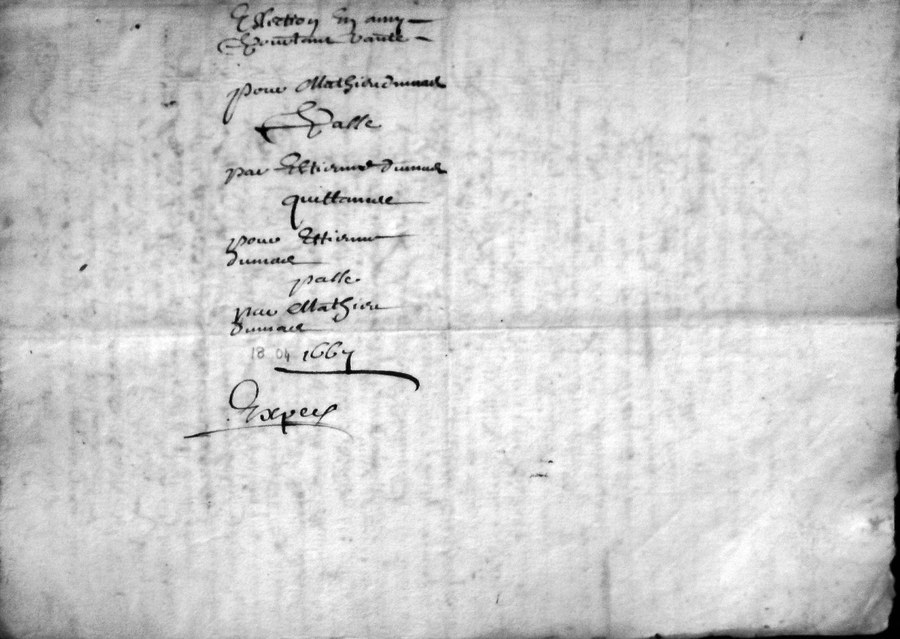 Ellection En amy
Portant vante
pour Mathieu dumas
Passe
par Estienne dumas
quittance
pour Estienne
dumas
passe
par Mathieu
dumas
18 04 1667
Exper